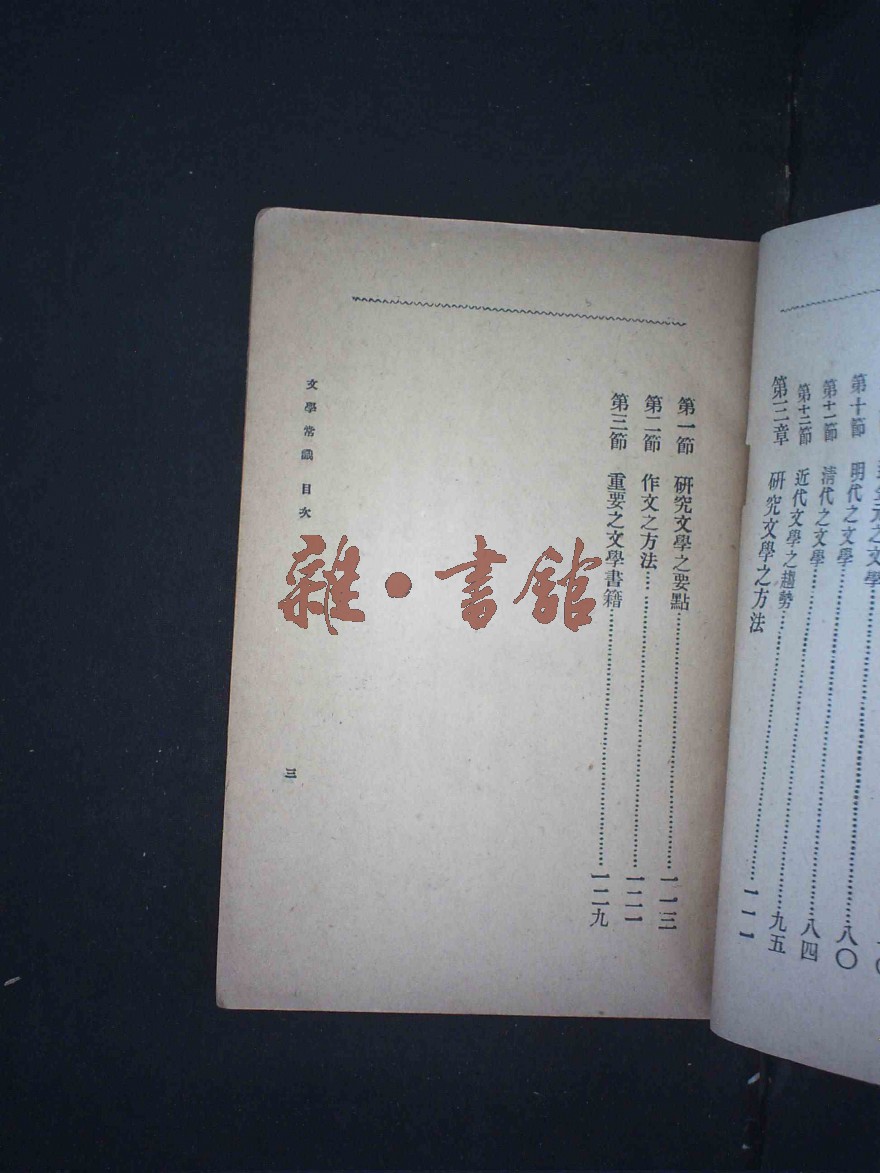 金元之文學
第十節　明代之文學……八〇
第十一節　清代之文學……八四
第十二節　近代文學之趨勢……九五
第三章　研究文學之方法……一一一
第一節　研究文學之要點……一一三
第二節　作文之方法……一二一
第三節　重要之文學書籍……一二九
文學常識　目次
三
雜·書館